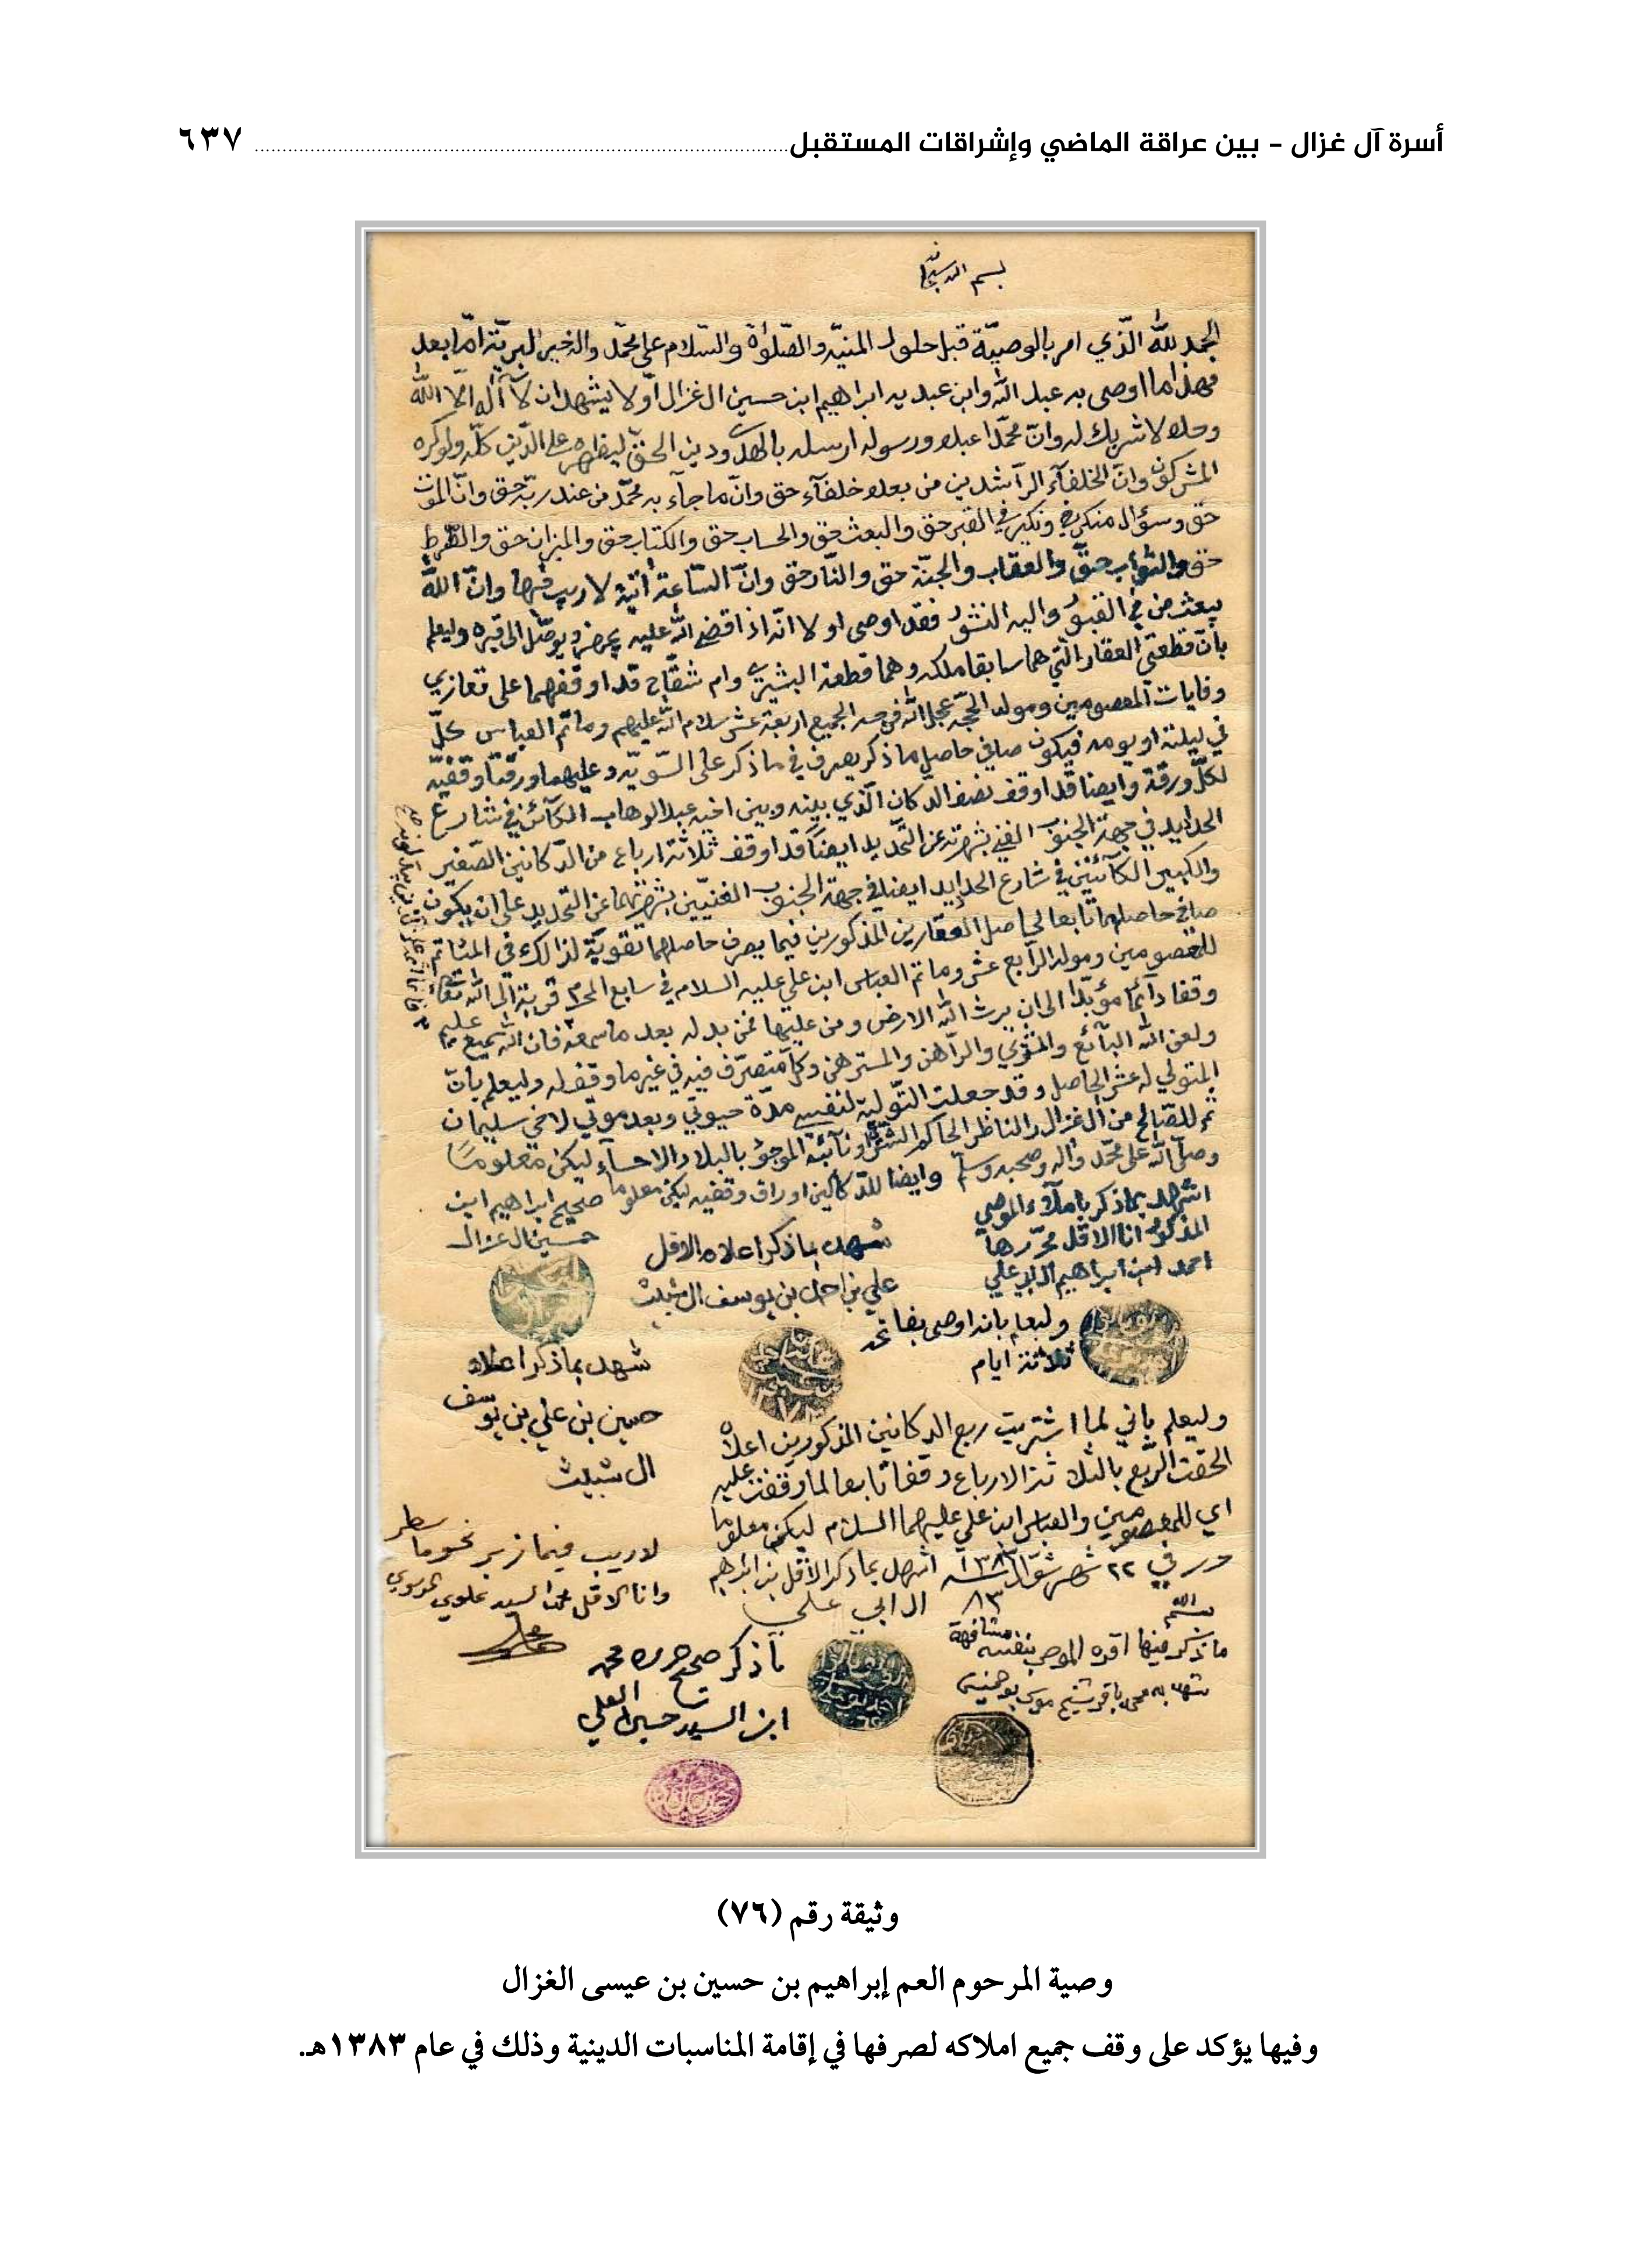 أسرة آل غزال - بين عراقة الماضي وإشراقات المستقبل ٦٣٧
الحمد لله الّذي امر بالوصيّة قبل حلول المنيّه والصّلوٰة والسّلام على محمّد واله خير البريّة امّا بعد
فهذا ما اوصى به عبد اللّه وابن عبديه ابراهيم ابن حسين ال غزال اوّلا يشهد ان لا آله الّا اللّه
وحده لا شريك له وانّ محمّدا عبده ورسوله ارسله بالهدى ودين الحقّ ليظهره على الدّين كلّه ولو كره
المشركون وانّ الخلفآء الرّاشدين من بعده خلفآء حق وانّ ما جآء به محمّد من عند ربّه حق وانّ الموت
حق وسؤال منكر ونكير في القبر حق والبعث حق والحساب حق والكتاب حق والميزان حق والصّراط
حق والثوٰاب حقّ والعقاب والجنّة حق والنّار حق وانّ السّاعة اٰتية لا ريب فيها وانّ اللّه
يبعث من في القبور واليه النشور فقد اوصى اولا انّه اذا قضى اللّه عليه يجهز ويوصّل الى قبره وليعلم
بانّ قطعتي العقار الّتي هما سابقا ملكه وهما قطعة البشيري وام شقّاح قد اوقفهما على تعازي
وفايات المعصومين ومولد الحجّة عجل اللّه فرجه الجميع اربعة عشر سلام اللّه عليهم وماتم العباس كلّ
في ليلته او يومه فيكون صافي حاصل ما ذكر يصرف في ما ذكر على السّويّه وعليهما ورقتا وقفيّه
لكلّ ورقة وايضا قد اوقف نصف الدكان الّذي بينه وبين اخيه عبد الوهاب الكآئن في شارع
الحدايد في جهة الجنوب الغني بشهرته عن التّحديد ايضاً قد اوقف ثلاثة ارباع من الدّكانين الصّغير
والكبير الكآئنين في شارع الحدايد ايضا في جهة الجنوب الغنيّين بشهرتهما عن التحديد على ان يكون
صافي حاصلهما تابعا لحاصل العقارين المذكورين فيما يصرف حاصلهما تقويّة لذالك في المئاتم
للمعصومين ومولد الرّابع عشر وماتم العباس ابن علي عليه السلام في سابع المحرم قربة الى اللّه تعالى
وقفا دآئما مؤبّدا الى ان يرث اللّه الارض ومن عليها فمن بدله بعد ما سمعه فان اللّه سميع عليم
ولعن اللّه البآئع والمشتري والرّاهن والمسترهن وكل متصرّف فيه في غير ما وقف له وليعلم بانّ
المتولي له عشر الحاصل وقد جعلت التّولية لنفسي مدّة حيوتي وبعد موتي لاخي سليمان
ثم للصّالح من آل غزال والناظر الحاكم الشّرعي او نآئبه الموجود بالبلاد الاحسآء ليكن معلوما
وصلّى اللّه على محمّد واله وصحبه وسلم وايضا للدّكاكين اوراق وقفيه ليكن معلوما صحيح ابراهيم ابن
حسين ال غزال
اشهد بما ذكر باملآء الموصي
المذكور انا الاقل محرّرها
احمد ابن ابراهيم ال ابي علي
شهد بما ذكر اعلاه الاقل
علي بن احمد بن يوسف ال شبيث
وليعلم بانه اوصى بفاتحه
ثلاثة ايام
شهد بما ذكر اعلاه
حسين بن علي بن يوسف
ال شبيث
وليعلم باني لما اشتريت ربع الدكانين المذكورين اعلاه
الحقت الرّبع بالثلاثة الارباع وقفا تابعا لما وقفت عليه
اي للمعصومين والعباس ابن علي عليهما السلام ليكن معلوما
حرر في ٢٢ شهر شوّال ١٣٨٣ اشهد بما ذكر الاقل بن ابراهيم
٨٣ ال ابي علي
لا ريب فيما زبر نحو ما سطر
وانا الاقل محمد السيد علوي الموسوي
ما ذكر فيها اقره الموصي بنفسه مشافهة
شهد به محمد باقر شيخ موسى بوخمسين
ما ذكر صحيح حرره محمد
ابن السيد حسين العلي
وثيقة رقم (٧٦)
وصية المرحوم العم إبراهيم بن حسين بن عيسى الغزال
وفيها يؤكد على وقف جميع املاكه لصرفها في إقامة المناسبات الدينية وذلك في عام ١٣٨٣هـ.